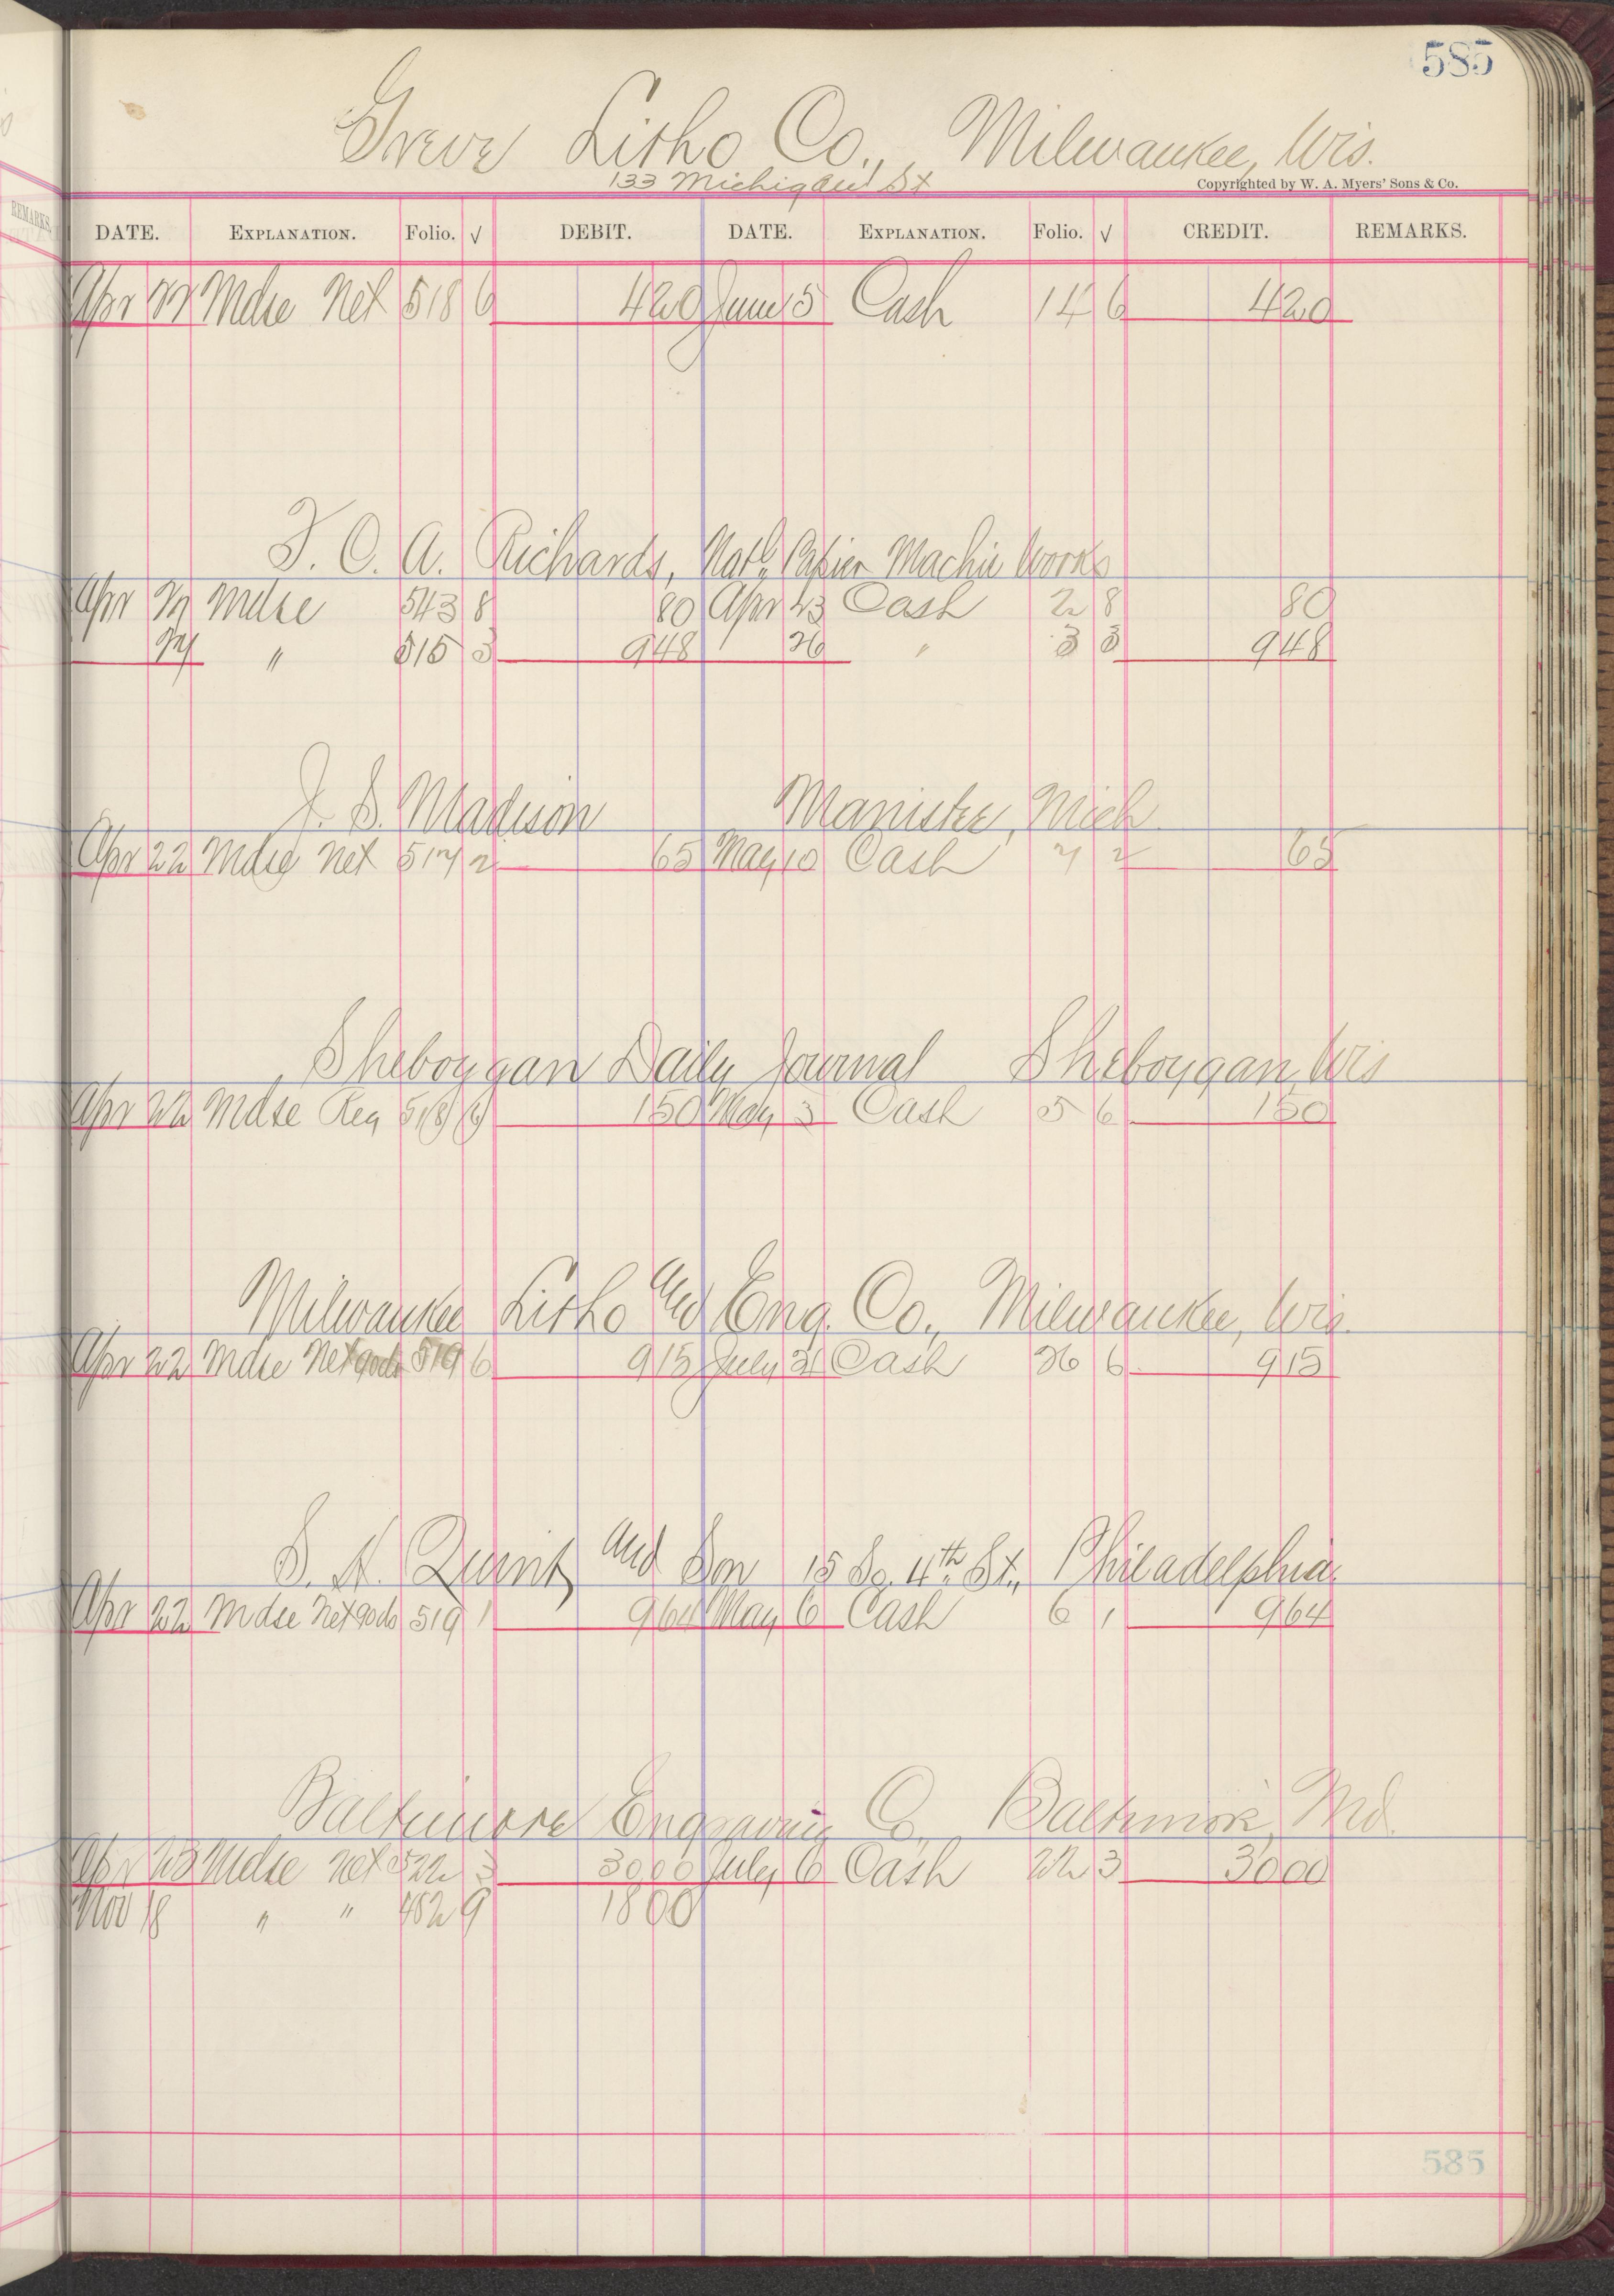 585
Greve Litho Co., Milwaukee, Wis.
133 Michigan St
Copyrighted by W. A. Myers' Sons & Co.
REMARKS.
DATE. EXPLANATION. Folio. √ DEBIT. DATE. EXPLANATION. Folio. √ CREDIT. REMARKS.
Apr 22 Mdse Net 518 6 420 June 5 Cash 14 6 420
T. C. A. Richards, Natl. Papier Machie Works
Apr Mdse 543 8 80 Apr 23 Cash 2 8 80
" 515 3 948 26 " 3 3 948
J. S. Madison Manistee, Mich
Apr 22 Mdse Net 517 2 65 May 10 Cash 7 2 65
Sheboygan Daily Journal Sheboygan, Wis
Apr 22 Mdse Reg 518 6 150 May 3 Cash 5 6 150
Milwaukee Litho and Eng. Co., Milwaukee, Wis.
Apr 22 Mdse Net 90ds 519 6 915 July 31 Cash 26 6 915
S. H. Quint and Son 15 So. 4th St., Philadelphia
Apr 22 Mdse Net 90ds 519 1 964 May 6 Cash 6 1 964
Baltimore Engraving Co. Baltimore, Md.
Apr 23 Mdse Net 522 3 3000 July 6 Cash 22 3 3000
Nov 18 " " 482 9 1800
585